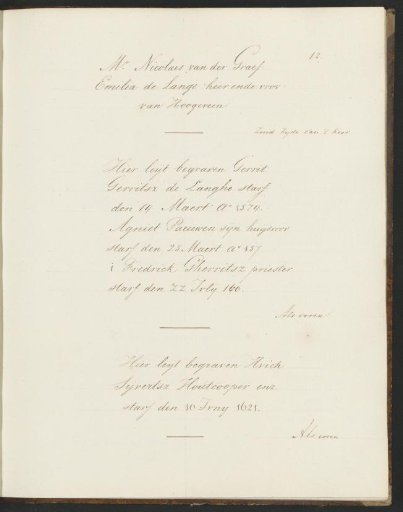 12
Mr. Nicolaes van der Graef
Emilia de Lange heer ende vrov
van Hoogeveen
Zuid zyde van 't koor
Hier leyt begraven Gerrit
Gerritsz de Langhe starf
den 14 Maert Ao 1570.
Agniet Pauwen syn huysvrov
starf den 23 Maert Ao 157
i Fredrick Gherritsz priester
starf den 22 Ivly 166
Als voren
Hier leyt begraven Hvich
Syvertsz Houtcooper enz
starf den 10 Ivny 1621.
Als voren